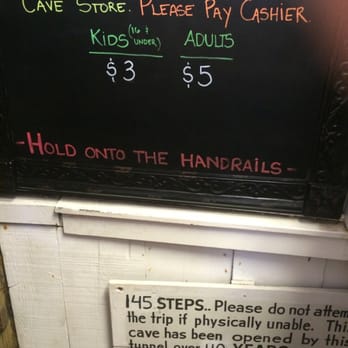 CAVE STORE. PLEASE PAY CASHIER.
KIDS (16 & UNDER) ADULTS
$3 $5
- HOLD ONTO THE HANDRAILS -
145 STEPS.. Please do not attem
the trip if physically unable. Thi
cave has been opened by this
tunnel over 40 YEARS